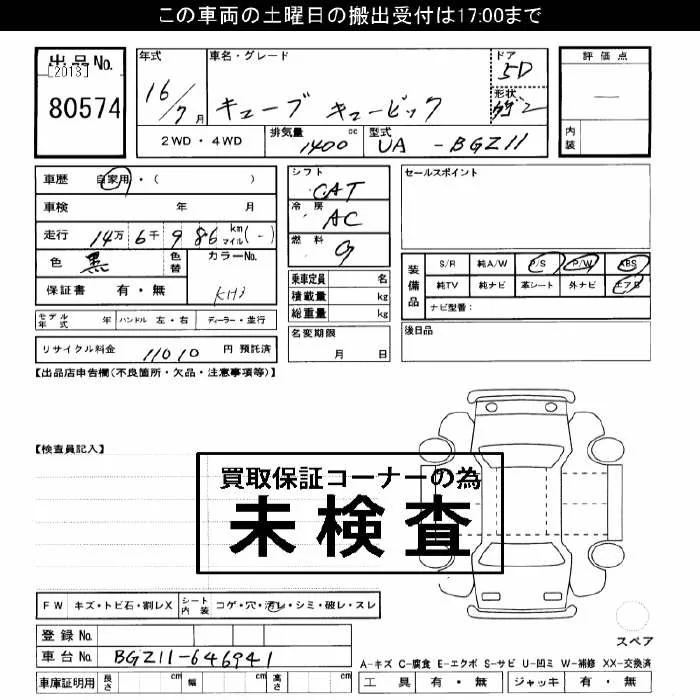 この車両の土曜日の搬出受付は17:00まで
出品No. 年式 車名・グレード ドア 評価点
[2013] 16/7月 キューブ キュービック 5D
80574 形状
2WD・4WD 排気量 1400 cc 型式 UA-BGZ11 内装
車歴 自家用・( ) シフト CAT セールスポイント
車検 年 月 冷房 AC
走行 14万 6千 9 86 km マイル(-) 燃料 G
色 黒 色替 カラーNo. KH3
保証書 有・無
乗車定員 名
積載量 kg
総重量 kg
装備品 S/R 純A/W P/S P/W ABS
純TV 純ナビ 革シート 外ナビ エアB
ナビ型番:
モデル年式 年 ハンドル 左・右 ディーラー・並行 名変期限 月 日 後日品
リサイクル料金 11010 円 預託済
【出品店申告欄(不良箇所・欠品・注意事項等)】
【検査員記入】
買取保証コーナーの為
未検査
FW キズ・トビ石・割レX シート内装 コゲ・穴・汚レ・シミ・破レ・スレ
登録No. スペア
車台No. BGZ11-646941
A-キズ C-腐食 E-エクボ S-サビ U-凹ミ W-補修 XX-交換済
車庫証明用 長さ cm 幅 cm 高さ cm 工具 有・無 ジャッキ 有・無